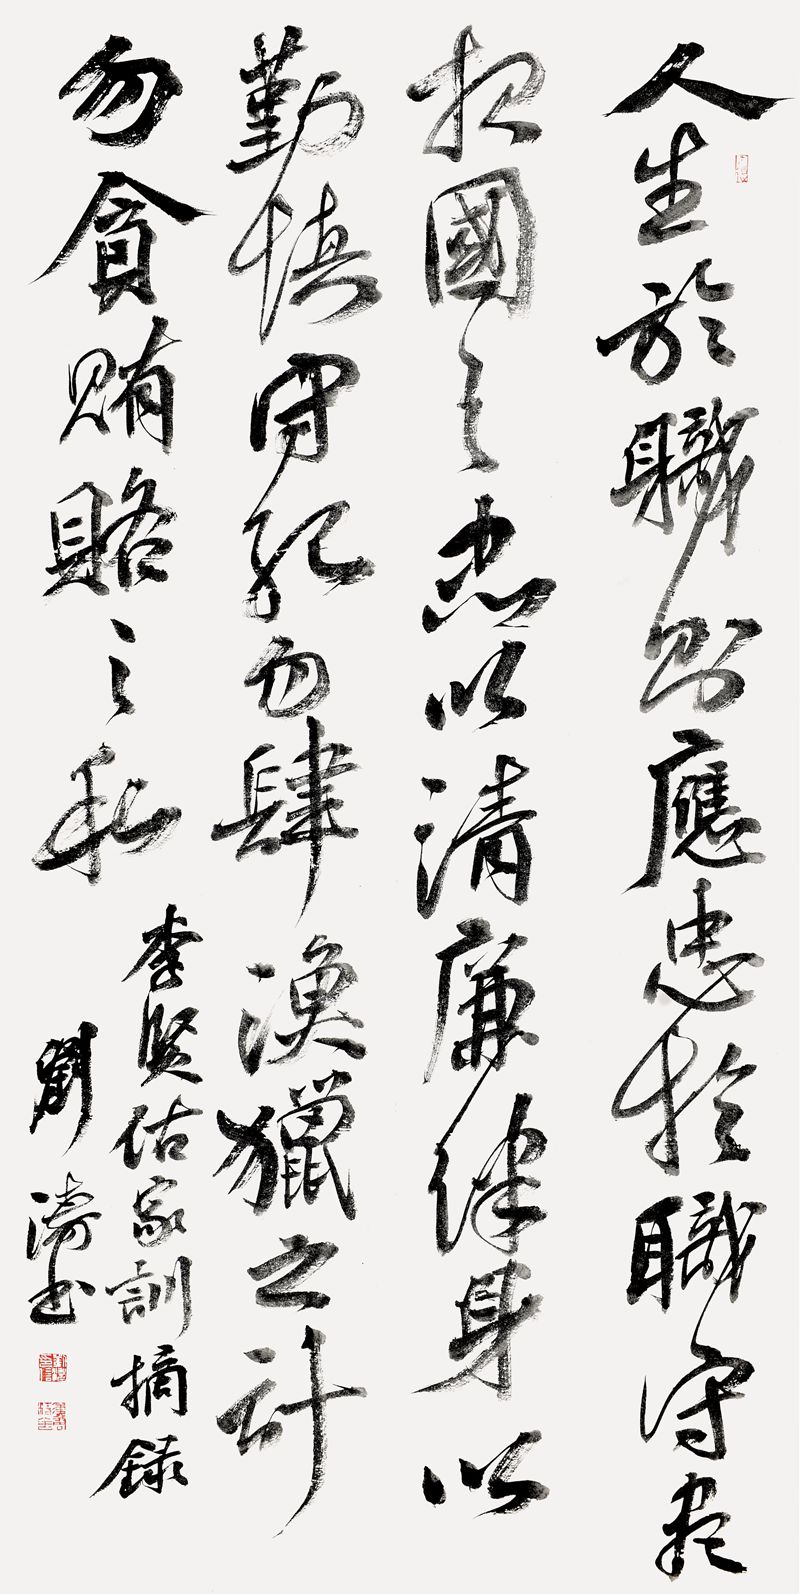 人生於職則應忠於職守盡
报國之忠以清廉律身以
勤慎守己勿肆漁獵之計
勿貪賄賂之私
李賢佑家訓摘録
劉濤书